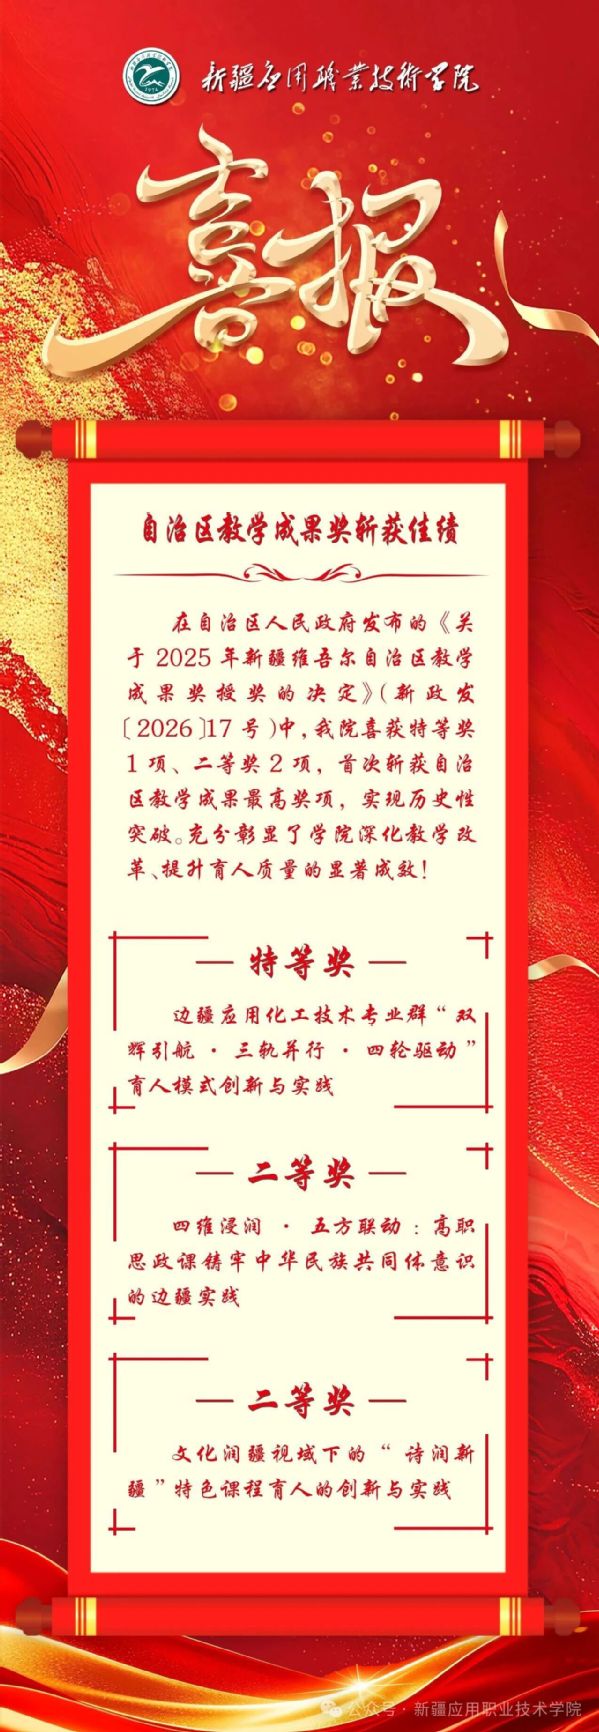 新疆应用职业技术学院
喜报
自治区教学成果奖斩获佳绩
在自治区人民政府发布的《关
于2025年新疆维吾尔自治区教学
成果奖授奖的决定》(新政发
〔2026〕17号)中,我院喜获特等奖
1项、二等奖2项,首次斩获自治
区教学成果最高奖项,实现历史性
突破。充分彰显了学院深化教学改
革、提升育人质量的显著成效!
特等奖
边疆应用化工技术专业群“双
辉引航·三轨并行·四轮驱动”
育人模式创新与实践
二等奖
四维浸润·五方联动:高职
思政课铸牢中华民族共同体意识
的边疆实践
二等奖
文化润疆视域下的“诗润新
疆”特色课程育人的创新与实践
公众号·新疆应用职业技术学院